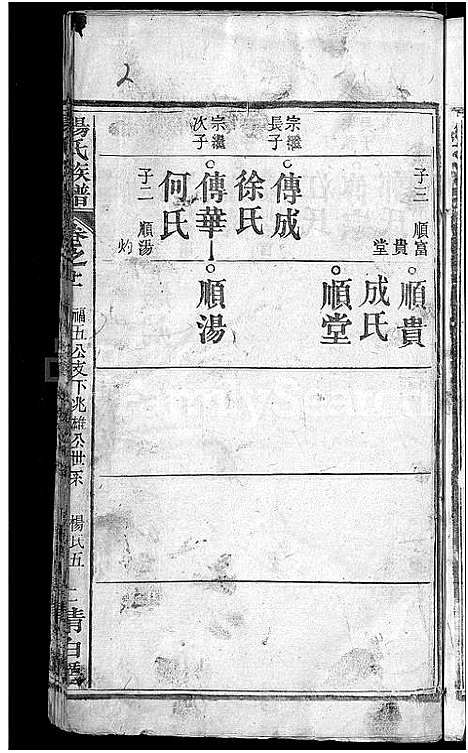 子三 順富
貴
堂
順貴
成氏
順堂
宗繼
長子
傳成
徐氏
宗繼
次子
傳華
順湯
何氏
子二 順湯
灼
楊氏族譜
卷之廿
福五公支下兆雄公世系
楊氏五
清白堂
2
FamilySearch